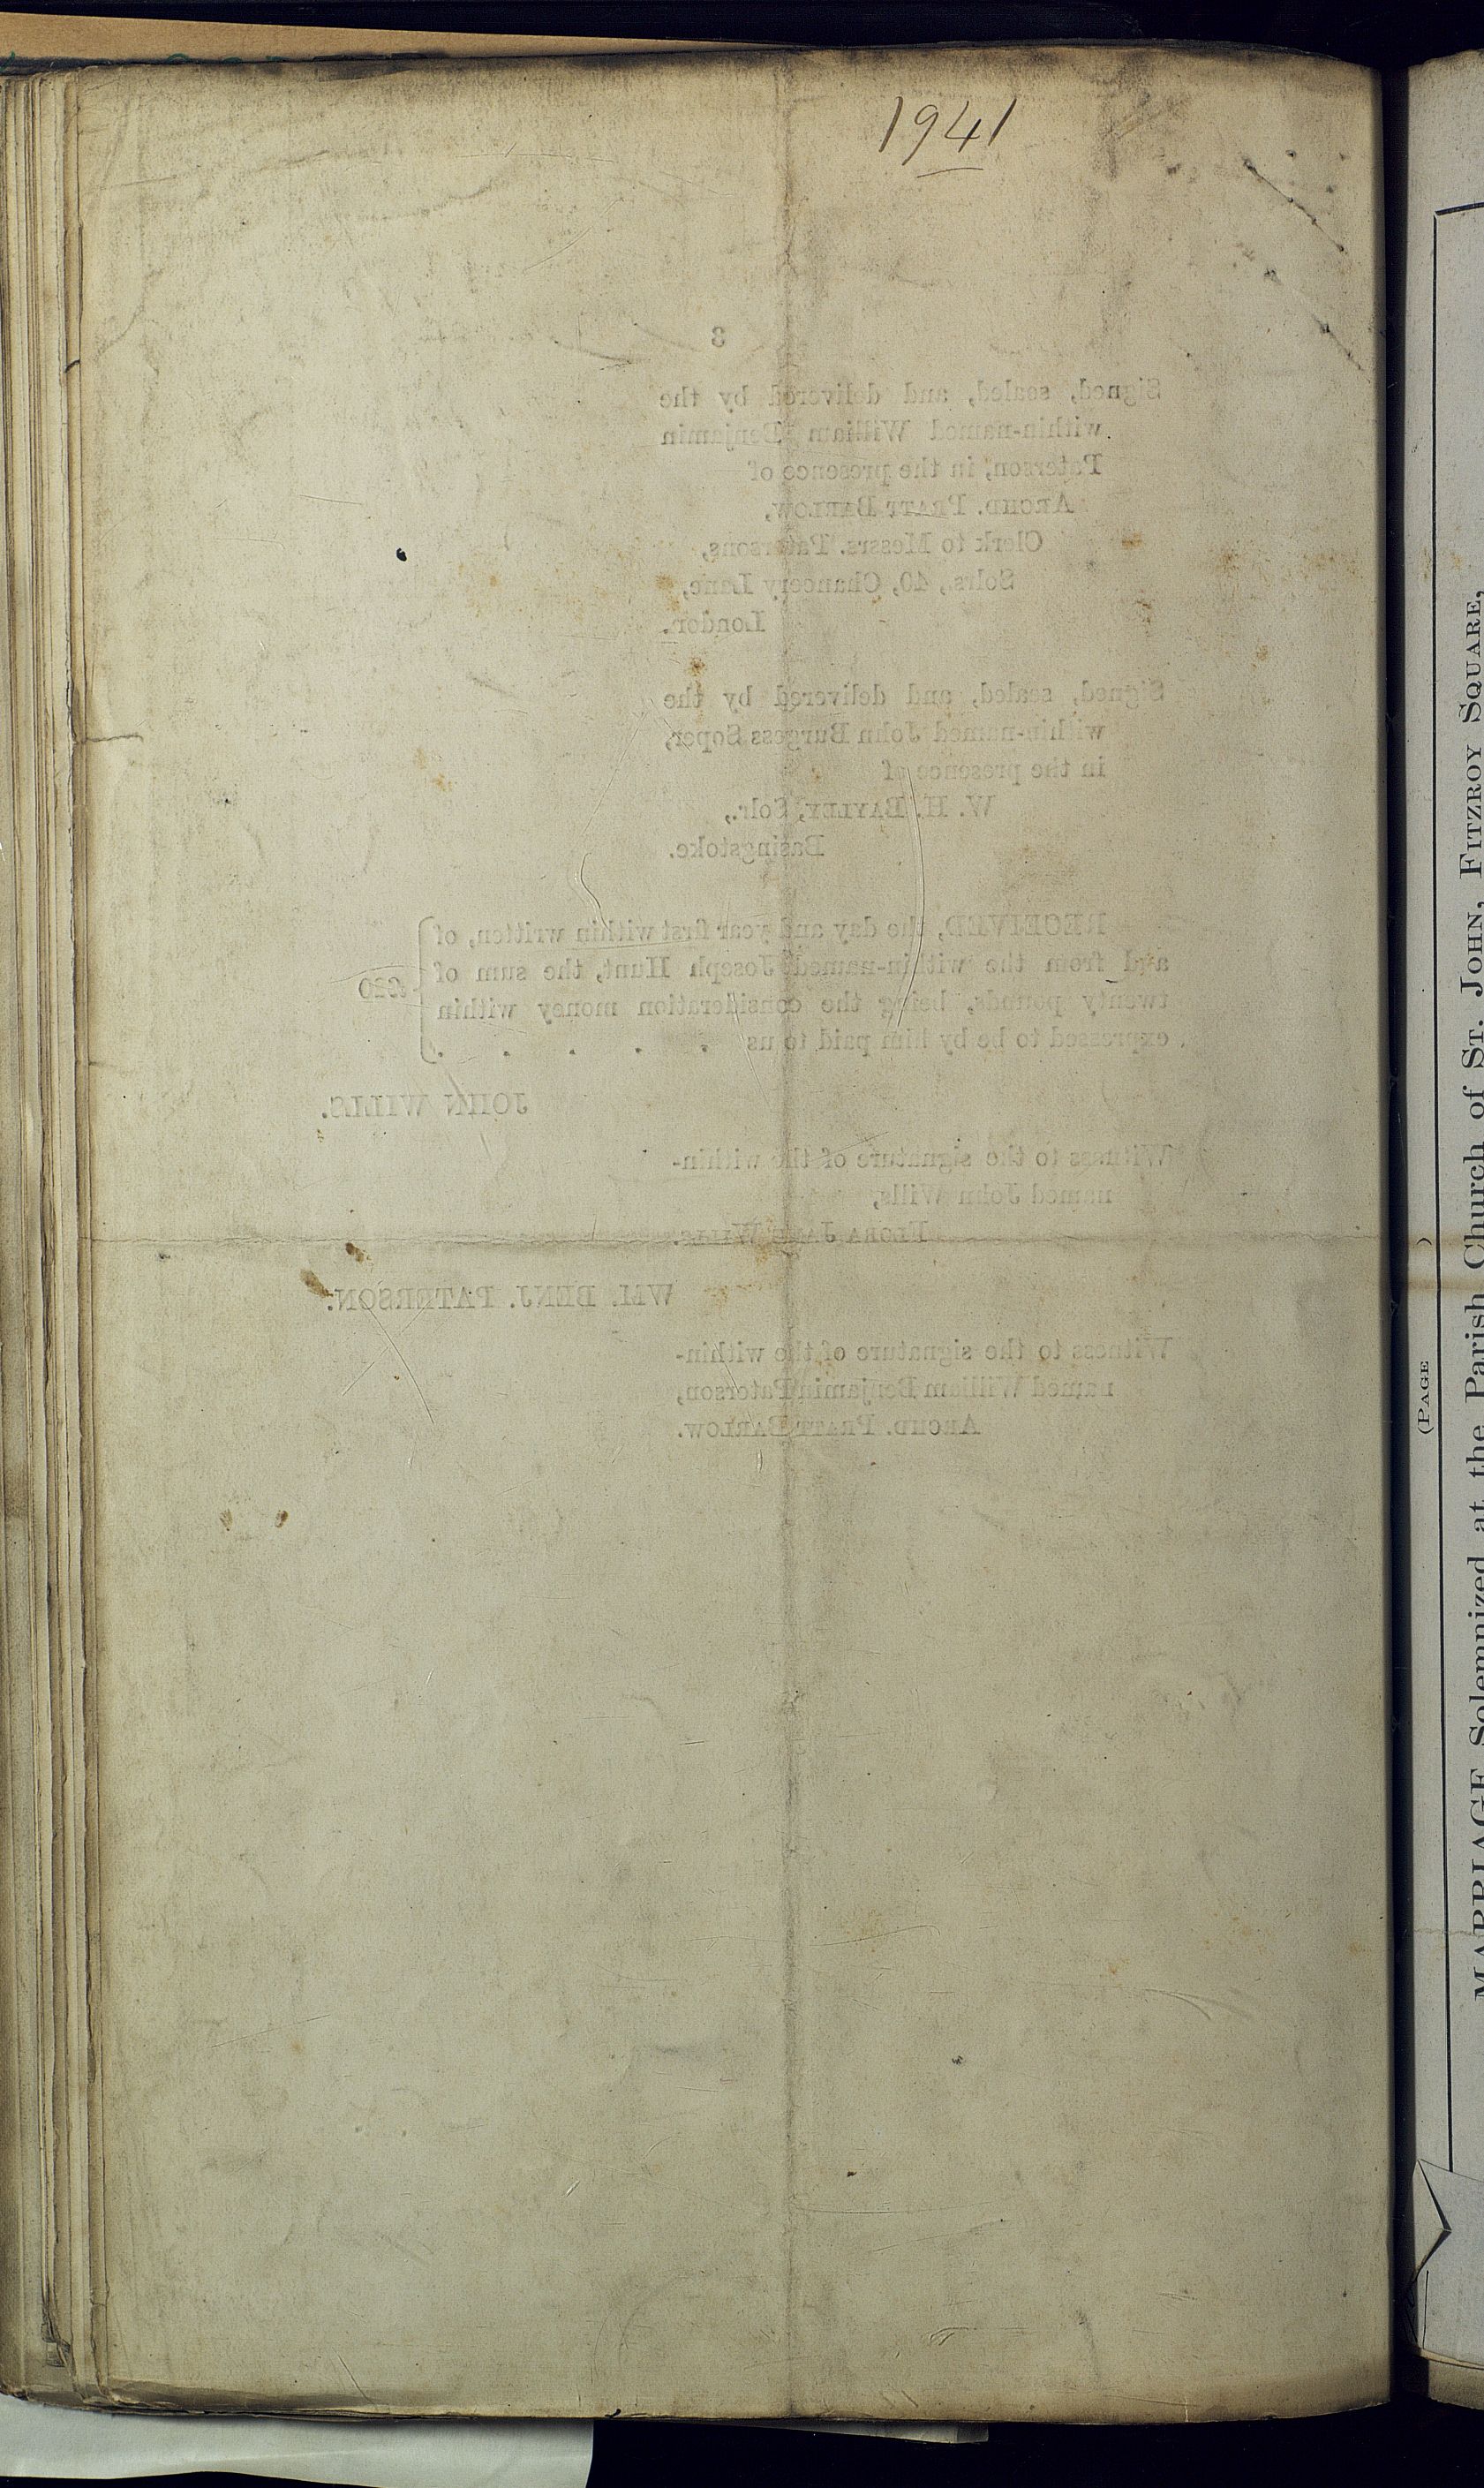 1941
3
Signed, sealed, and delivered by the
within-named William Benjamin
Paterson, in the presence of
ARCHD. PRATT BARLOW,
Clerk to Messrs. Patersons,
Solrs., 40, Chancery Lane,
London.
Signed, sealed, and delivered by the
within-named John Burgess Soper,
in the presence of
W. H. BAYLEY, Solr.,
Basingstoke.
RECEIVED, the day and year first within written, of
and from the within-named Joseph Hunt, the sum of
twenty pounds, being the consideration money within
expressed to be by him paid to us . . . . .
£20
JOHN WILLS.
Witness to the signature of the within-
named John Wills,
FLORA JANE WILLS.
WM. BENJ. PATERSON.
Witness to the signature of the within-
named William Benjamin Paterson,
ARCHD. PRATT BARLOW.
(PAGE )
MARRIAGE Solemnized at the Parish Church of ST. JOHN, FITZROY SQUARE,